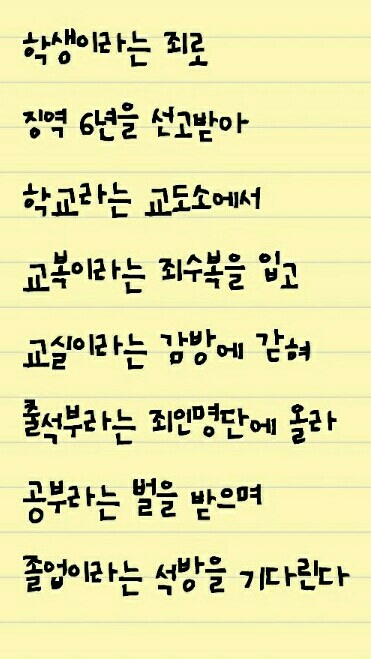 학생이라는 죄로
징역 6년을 선고받아
학교라는 교도소에서
교복이라는 죄수복을 입고
교실이라는 감방에 갇혀
출석부라는 죄인명단에 올라
공부라는 벌을 받으며
졸업이라는 석방을 기다린다